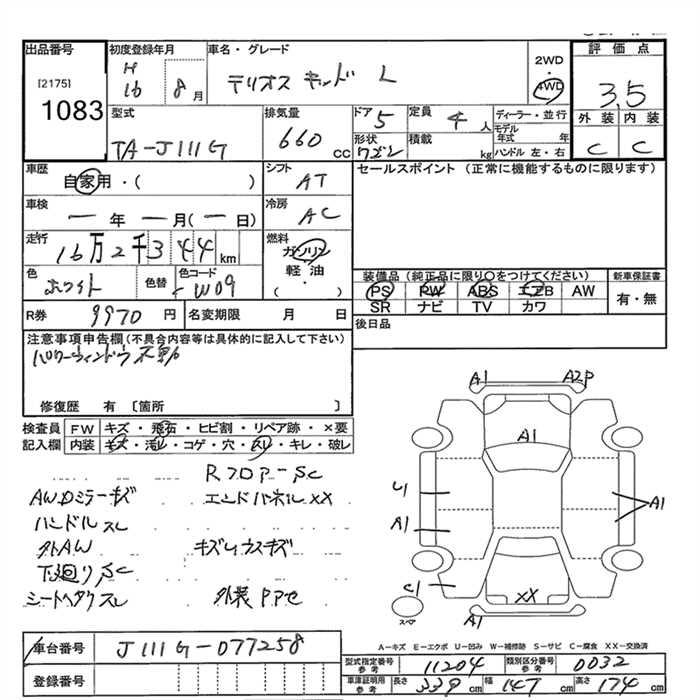 出品番号
[2175]
1083
初度登録年月
H
16 8 月
車名・グレード
テリオス キッド L
2WD
・
4WD
評価点
3.5
外装 内装
C C
型式
TA-J111G
排気量
660 cc
ドア
5
定員
4 人
形状
ワゴン
積載
kg
ディーラー・並行
モデル
年式 年
ハンドル 左・右
車歴
自家用・( )
シフト
AT
セールスポイント (正常に機能するものに限ります)
車検
ー 年 ー 月(ー 日)
冷房
AC
走行
16万2千344 km
燃料
ガソリン
軽油・
( )
色
ホワイト
色替
色コード
W09
装備品(純正品に限り〇をつけてください)
PS PW ABS エアB AW
SR ナビ TV カワ
新車保証書
有・無
R券
9970 円
名変期限 月 日
後日品
注意事項申告欄(不具合内容等は具体的に記入して下さい)
パワーウィンドウ不動
修復歴 有 〔箇所 〕
検査員
記入欄
FW キズ・飛石・ヒビ割・リペア跡・×要
内装 キズ・汚れ・コゲ・穴・スレ・キレ・破レ
RフロアーSC
AWDミラーキズ エンドパネルXX
ハンドルスレ
外AW キズ
下廻りSC
スレ 外装
A1 A2P
A1
U1
A1
A1
C1
XX
A1
スペア
A-キズ E-エクボ U-凹み W-補修跡 S-サビ C-腐食 XX-交換済
車台番号
J111G-077258
登録番号
型式指定番号
参考
11204
類別区分番号
参考
0032
車庫証明用
参考
長さ
339 cm
幅
147 cm
高さ
174 cm